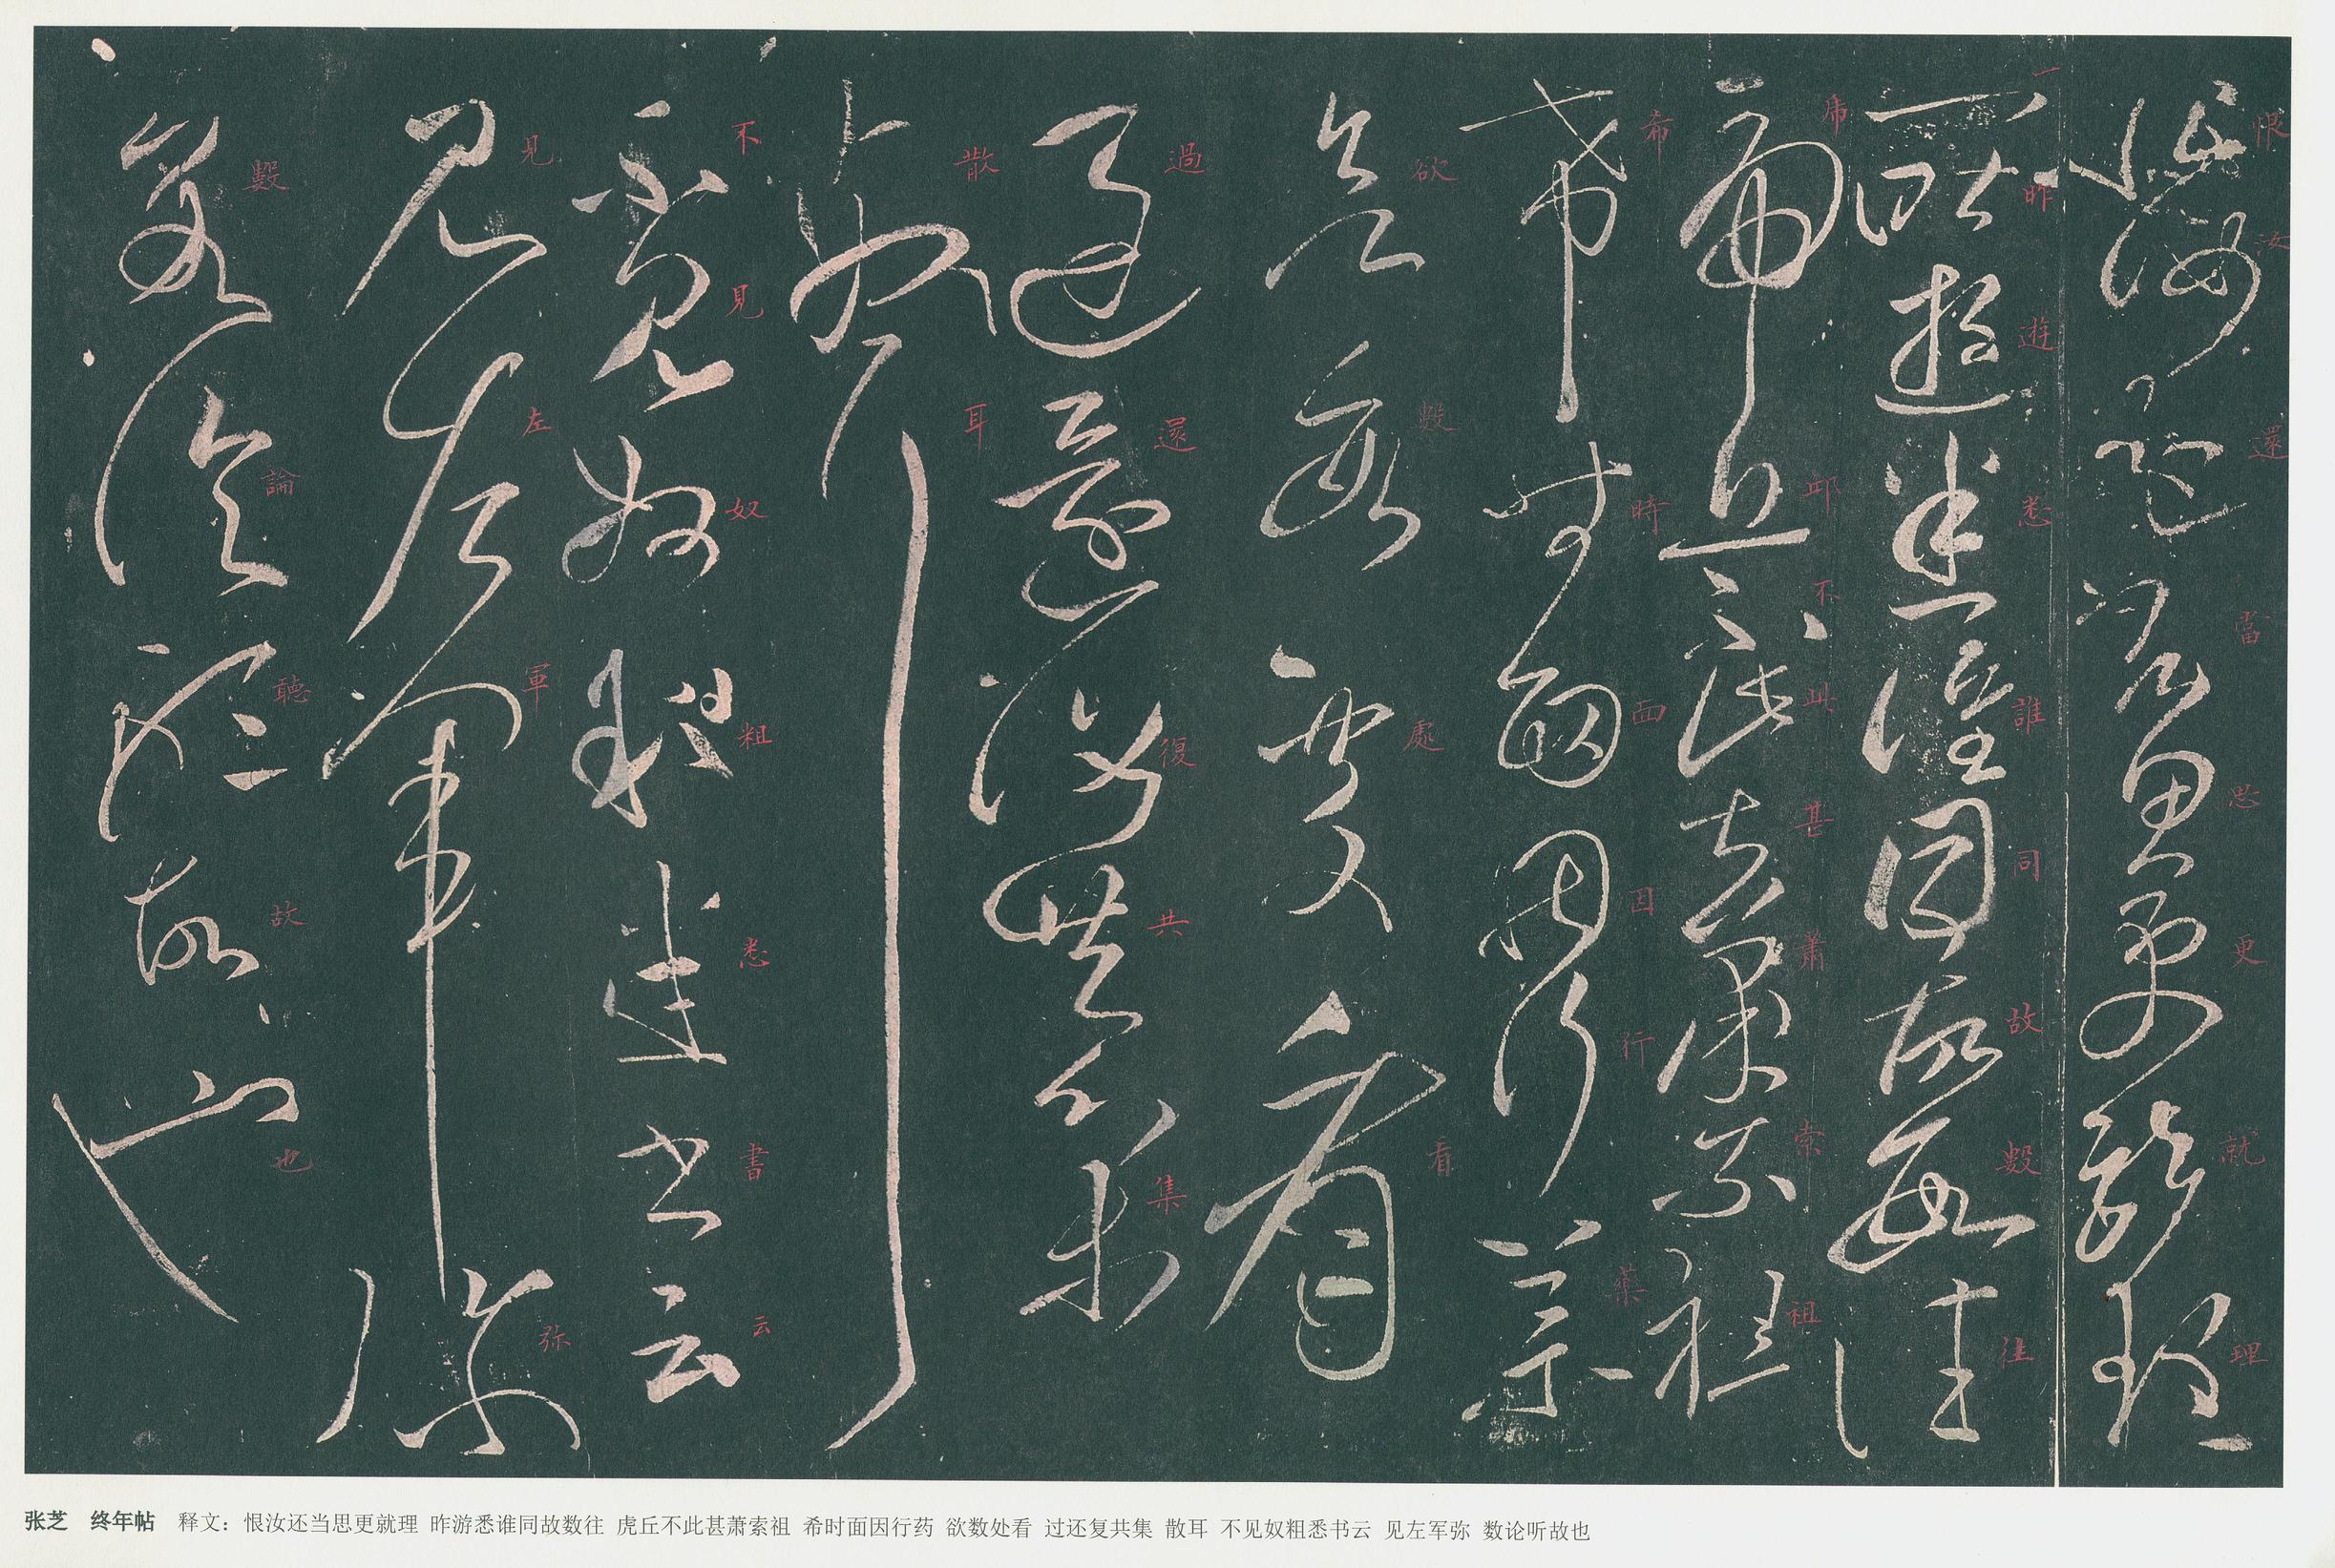 恨汝還當思更就理
一昨遊悉誰同故數往
虎丘不此甚蕭索祖
希時面因行藥
欲數處看
過還復共集
散耳
不見奴粗悉書云
見左軍弥
數論聽故也
张芝 终年帖 释文：恨汝还当思更就理 昨游悉谁同故数往 虎丘不此甚萧索祖 希时面因行药 欲数处看 过还复共集 散耳 不见奴粗悉书云 见左军弥 数论听故也